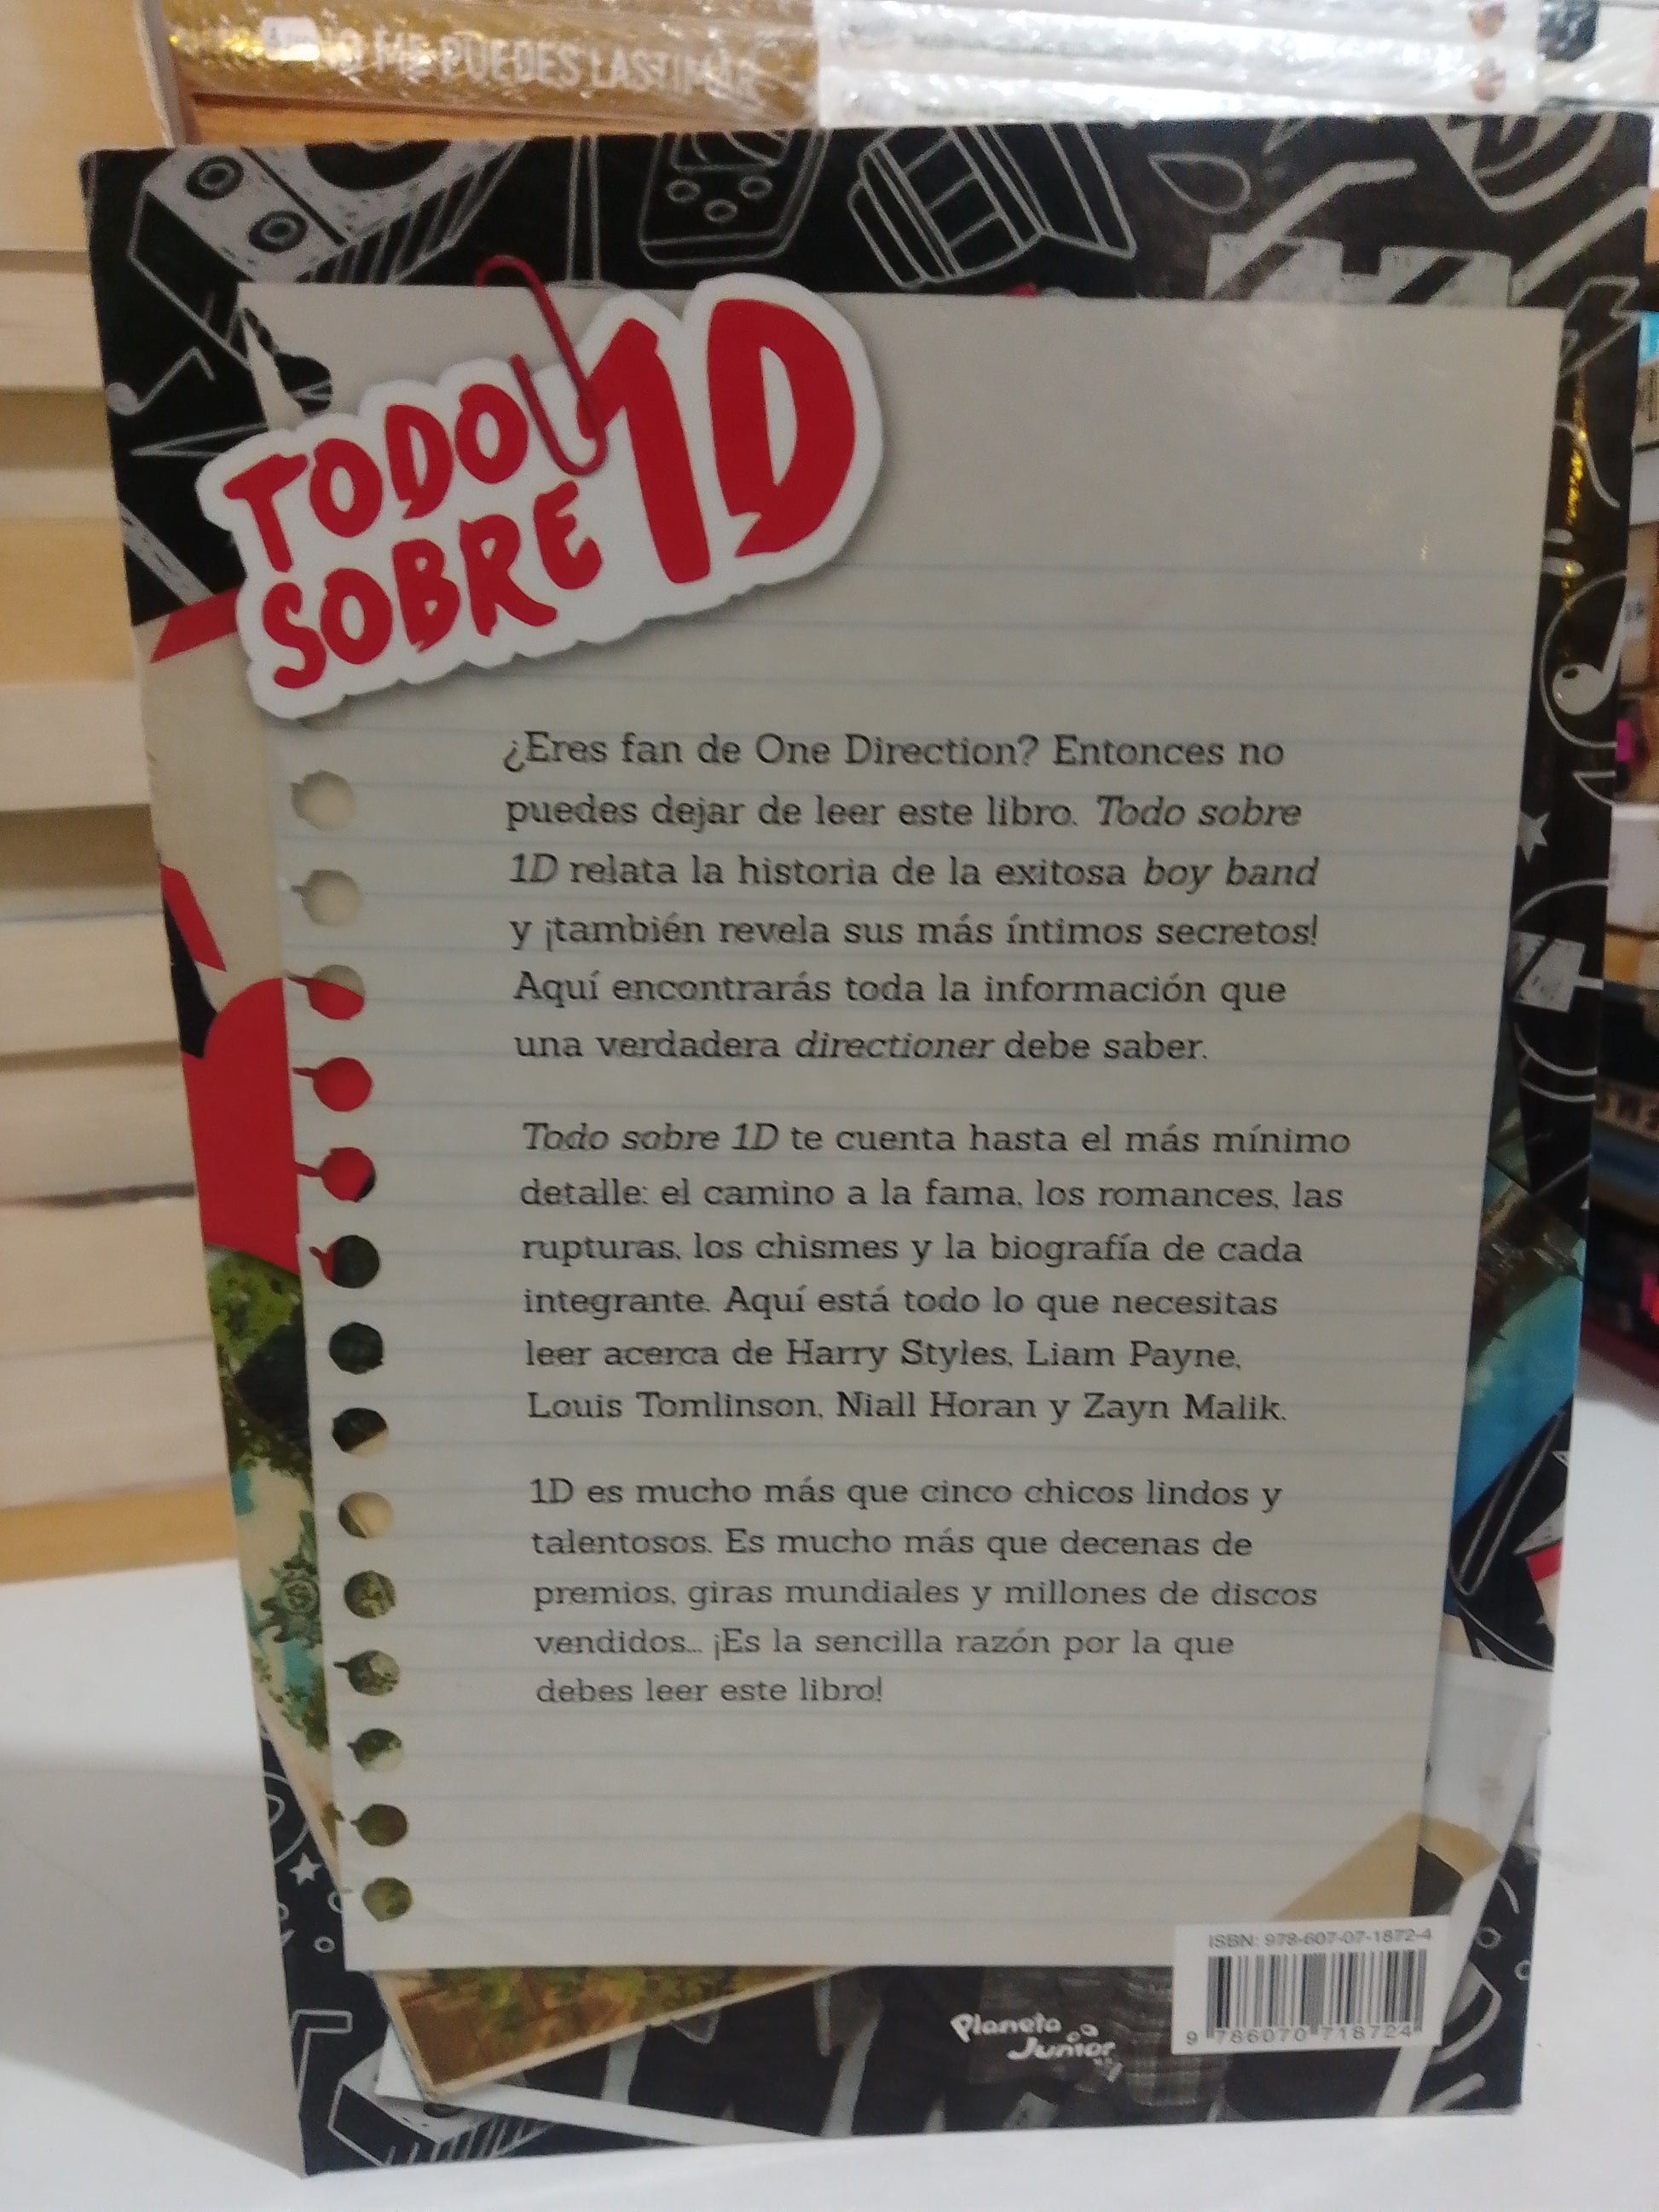 NO ME PUEDES LASTIMAR
TODO
SOBRE
1D
¿Eres fan de One Direction? Entonces no
puedes dejar de leer este libro. Todo sobre
1D relata la historia de la exitosa boy band
y ¡también revela sus más íntimos secretos!
Aquí encontrarás toda la información que
una verdadera directioner debe saber.
Todo sobre 1D te cuenta hasta el más mínimo
detalle: el camino a la fama, los romances, las
rupturas, los chismes y la biografía de cada
integrante. Aquí está todo lo que necesitas
leer acerca de Harry Styles, Liam Payne,
Louis Tomlinson, Niall Horan y Zayn Malik.
1D es mucho más que cinco chicos lindos y
talentosos. Es mucho más que decenas de
premios, giras mundiales y millones de discos
vendidos... ¡Es la sencilla razón por la que
debes leer este libro!
ISBN: 978-607-07-1872-4
9 786070 718724
Planeta
Junior